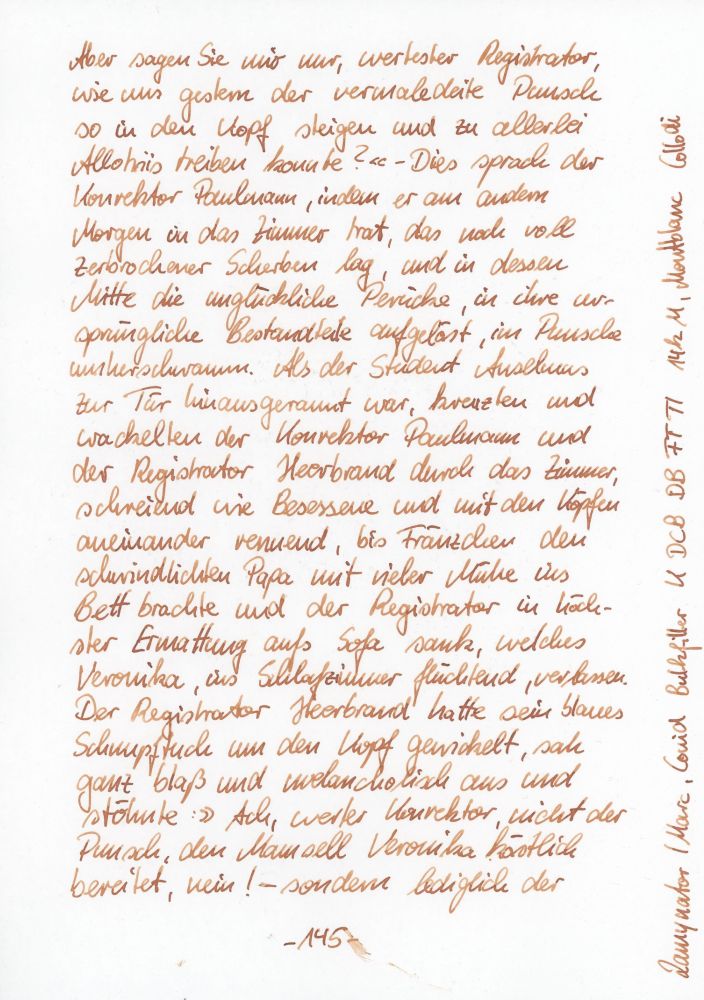 Aber sagen Sie mir nur, wertester Registrator,
wie uns gestern der vermaledeite Punsch
so in den Kopf steigen und zu allerlei
Allotriis treiben konnte?«-Dies sprach der
Konrektor Paulmann, indem er am andern
Morgen in das Zimmer trat, das noch voll
zerbrochener Scherben lag, und in dessen
Mitte die unglückliche Perücke, in ihre ur-
sprüngliche Bestandteile aufgelöst, im Punsche
umherschwamm. Als der Student Anselmus
zur Tür hinausgerannt war, kreuzten und
wackelten der Konrektor Paulmann und
der Registrator Heerbrand durch das Zimmer,
schreiend wie Besessene und mit den Köpfen
aneinander rennend, bis Fränzchen den
schwindlichten Papa mit vieler Mühe ins
Bett brachte und der Registrator in höch-
ster Ermattung aufs Sofa sank, welches
Veronika, ins Schlafzimmer flüchtend, verlassen.
Der Registrator Heerbrand hatte sein blaues
Schnupftuch um den Kopf gewickelt, sah
ganz blaß und melancholisch aus und
stöhnte :» Ach, werter Konrektor, nicht der
Punsch, den Mamsell Veronika köstlich
bereitet, nein! - sondern lediglich der
-145-
(Marc, Conid Bulkfiller DCB DB FT TI 14k M, Montblanc Collodi